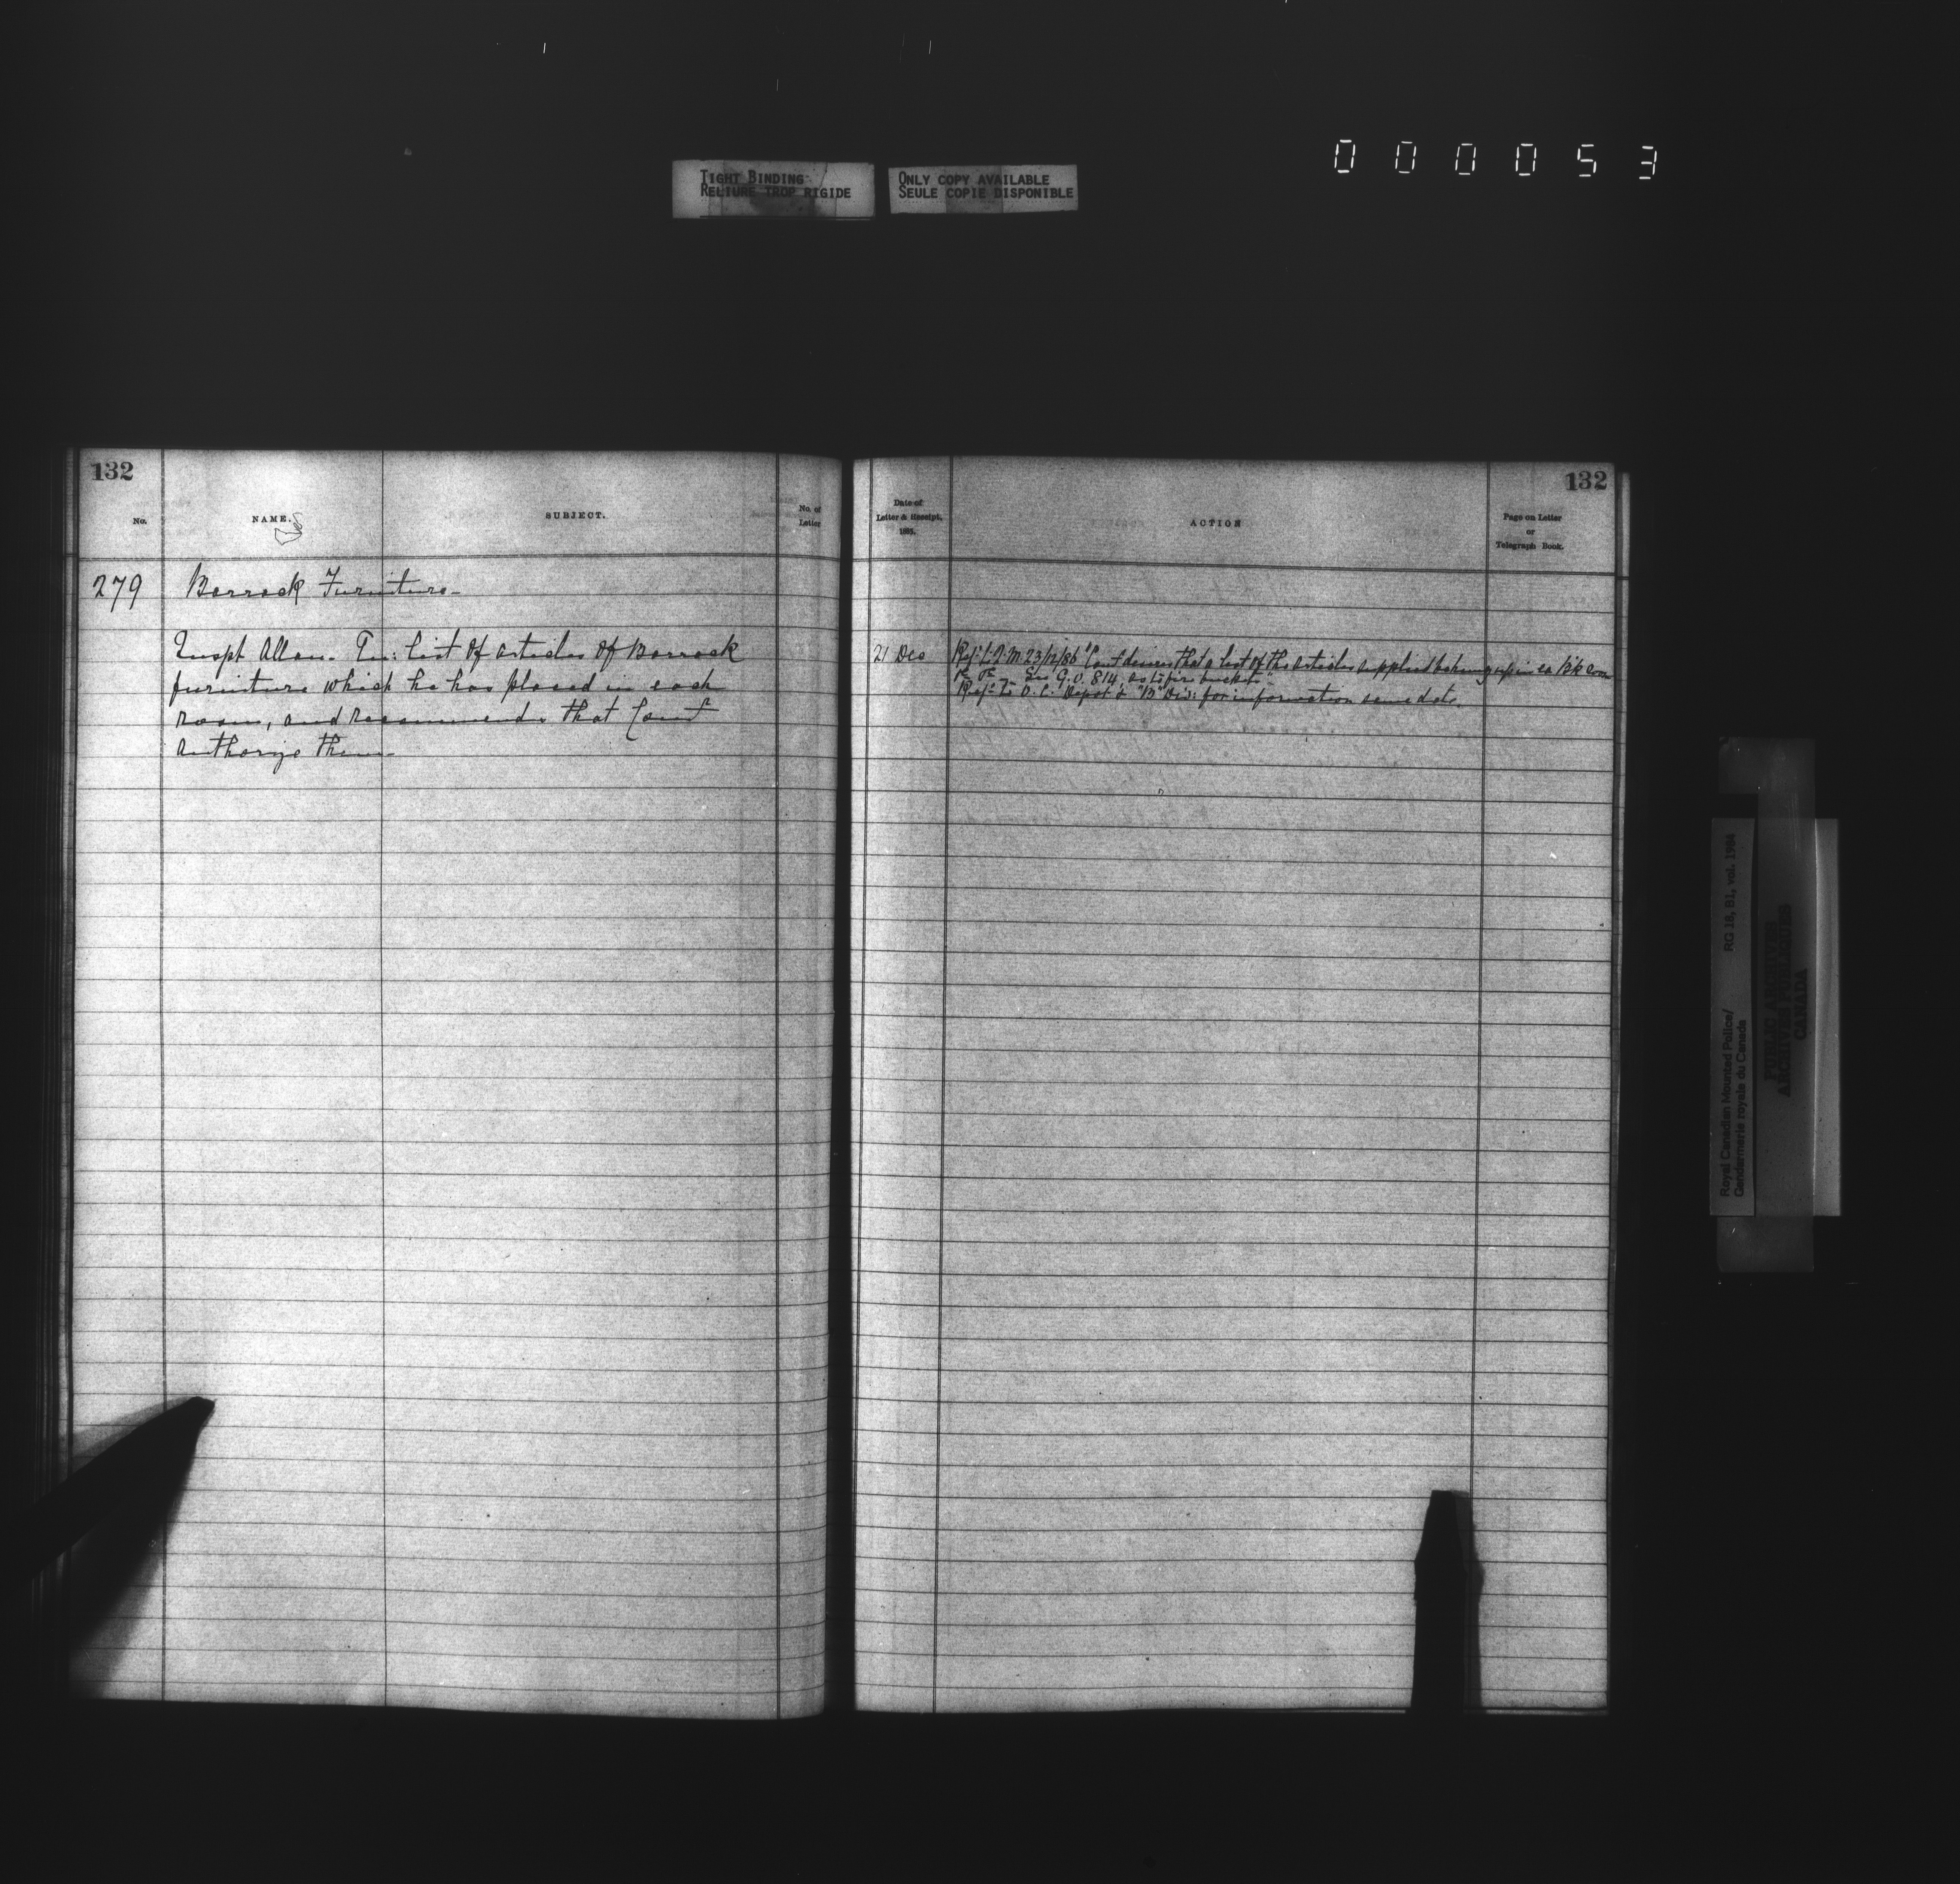 000053
TIGHT BINDING
RELIURE TROP RIGIDE
ONLY COPY AVAILABLE
SEULE COPIE DISPONIBLE
132
No.
NAME.
SUBJECT.
No. of
Letter
279 Barrack Furniture
Inspt Allan. list of articles of Barrack
furniture which he has placed in each
room, and recommends that Comt
authorize them
132
Date of
Letter & Receipt.
1885.
ACTION
Page on Letter
or
Telegraph Book.
21 Dec Ref: to Q.M. 23/12/86 "Comt desires that a list of the articles supplied be hung up in ea B'k room
See G.O. 814, as to fire buckets"
Ref: to O.C. Depot & "B" Div: for information same date.
Royal Canadian Mounted Police/
Gendarmerie royale du Canada
RG 18, B1, vol. 1984
PUBLIC ARCHIVES
ARCHIVES PUBLIQUES
CANADA